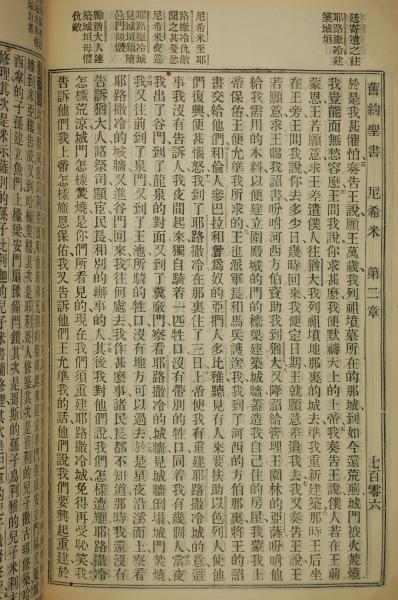 舊約聖書 尼希米 第二章 七百零六
廷寄遣之往
耶路撒冷建
築城垣
於是我甚懼怕奏告王說願王萬歲我列祖墳墓所在的那城到如今還荒蕪城門被火焚燒
我豈能面無愁容麼王問我說你求甚麼我便默禱天上的上帝我奏告王說僕人若在王前
蒙恩王若願意求王遣僕人往猶大我列祖墳地那裏的城去准我重新建築那時王后坐
在王旁王問我說你去多少日幾時回來我便定日期王就願意差遣我去我又奏告王說王
若願意求王賜我詔書吩咐河西方伯資助我到猶大又降詔給管理王園林的亞薩吩咐他
給我需用的木料以便建立圍殿城的門的樑架建築城牆蓋造我自己住的房屋我蒙我上
帝保佑王便允准我所求的王也派軍長和馬兵護送我我到了河西的方伯那裏將王的詔
尼希米至耶
路撒冷仇敵
聞之甚憂愁
書交給他們和倫人參巴拉和曾為奴的亞捫人多比雅聽見有人來要扶助以色列人使他
們復興便甚惱怒我到了耶路撒冷在那裏住了三日上帝使我有重建耶路撒冷城的意這
事我沒有告訴人我夜間起來獨自騎着一匹牲口沒有帶別的牲口同着我有幾個人當夜
尼希米夜巡
耶路撒冷城
見城垣頹
邑門燬
我出了谷門到了龍泉的對面又到了糞廠門察看耶路撒冷的城牆見城牆倒塌城門焚燒
我又往前到了泉門又到了王池所騎的牲口沒有地方可以過去於是星夜沿溪而上察看
耶路撒冷的城牆又進谷門回來我往何處去我作甚麼事諸民長都不知道那時我還沒有
勸猶大人建
築城垣毋懼
仇敵
告訴猶大人諸祭司顯臣民長和別的辦事的人其後我對他們說我們怎樣遭難耶路撒冷
怎樣荒涼城門怎樣焚燒是你們所看見的現在我們須重建耶路撒冷城免得再受恥笑我
告訴他們我上帝怎樣施恩保佑我又告訴他們王允準我的話他們說我們要興起重建於